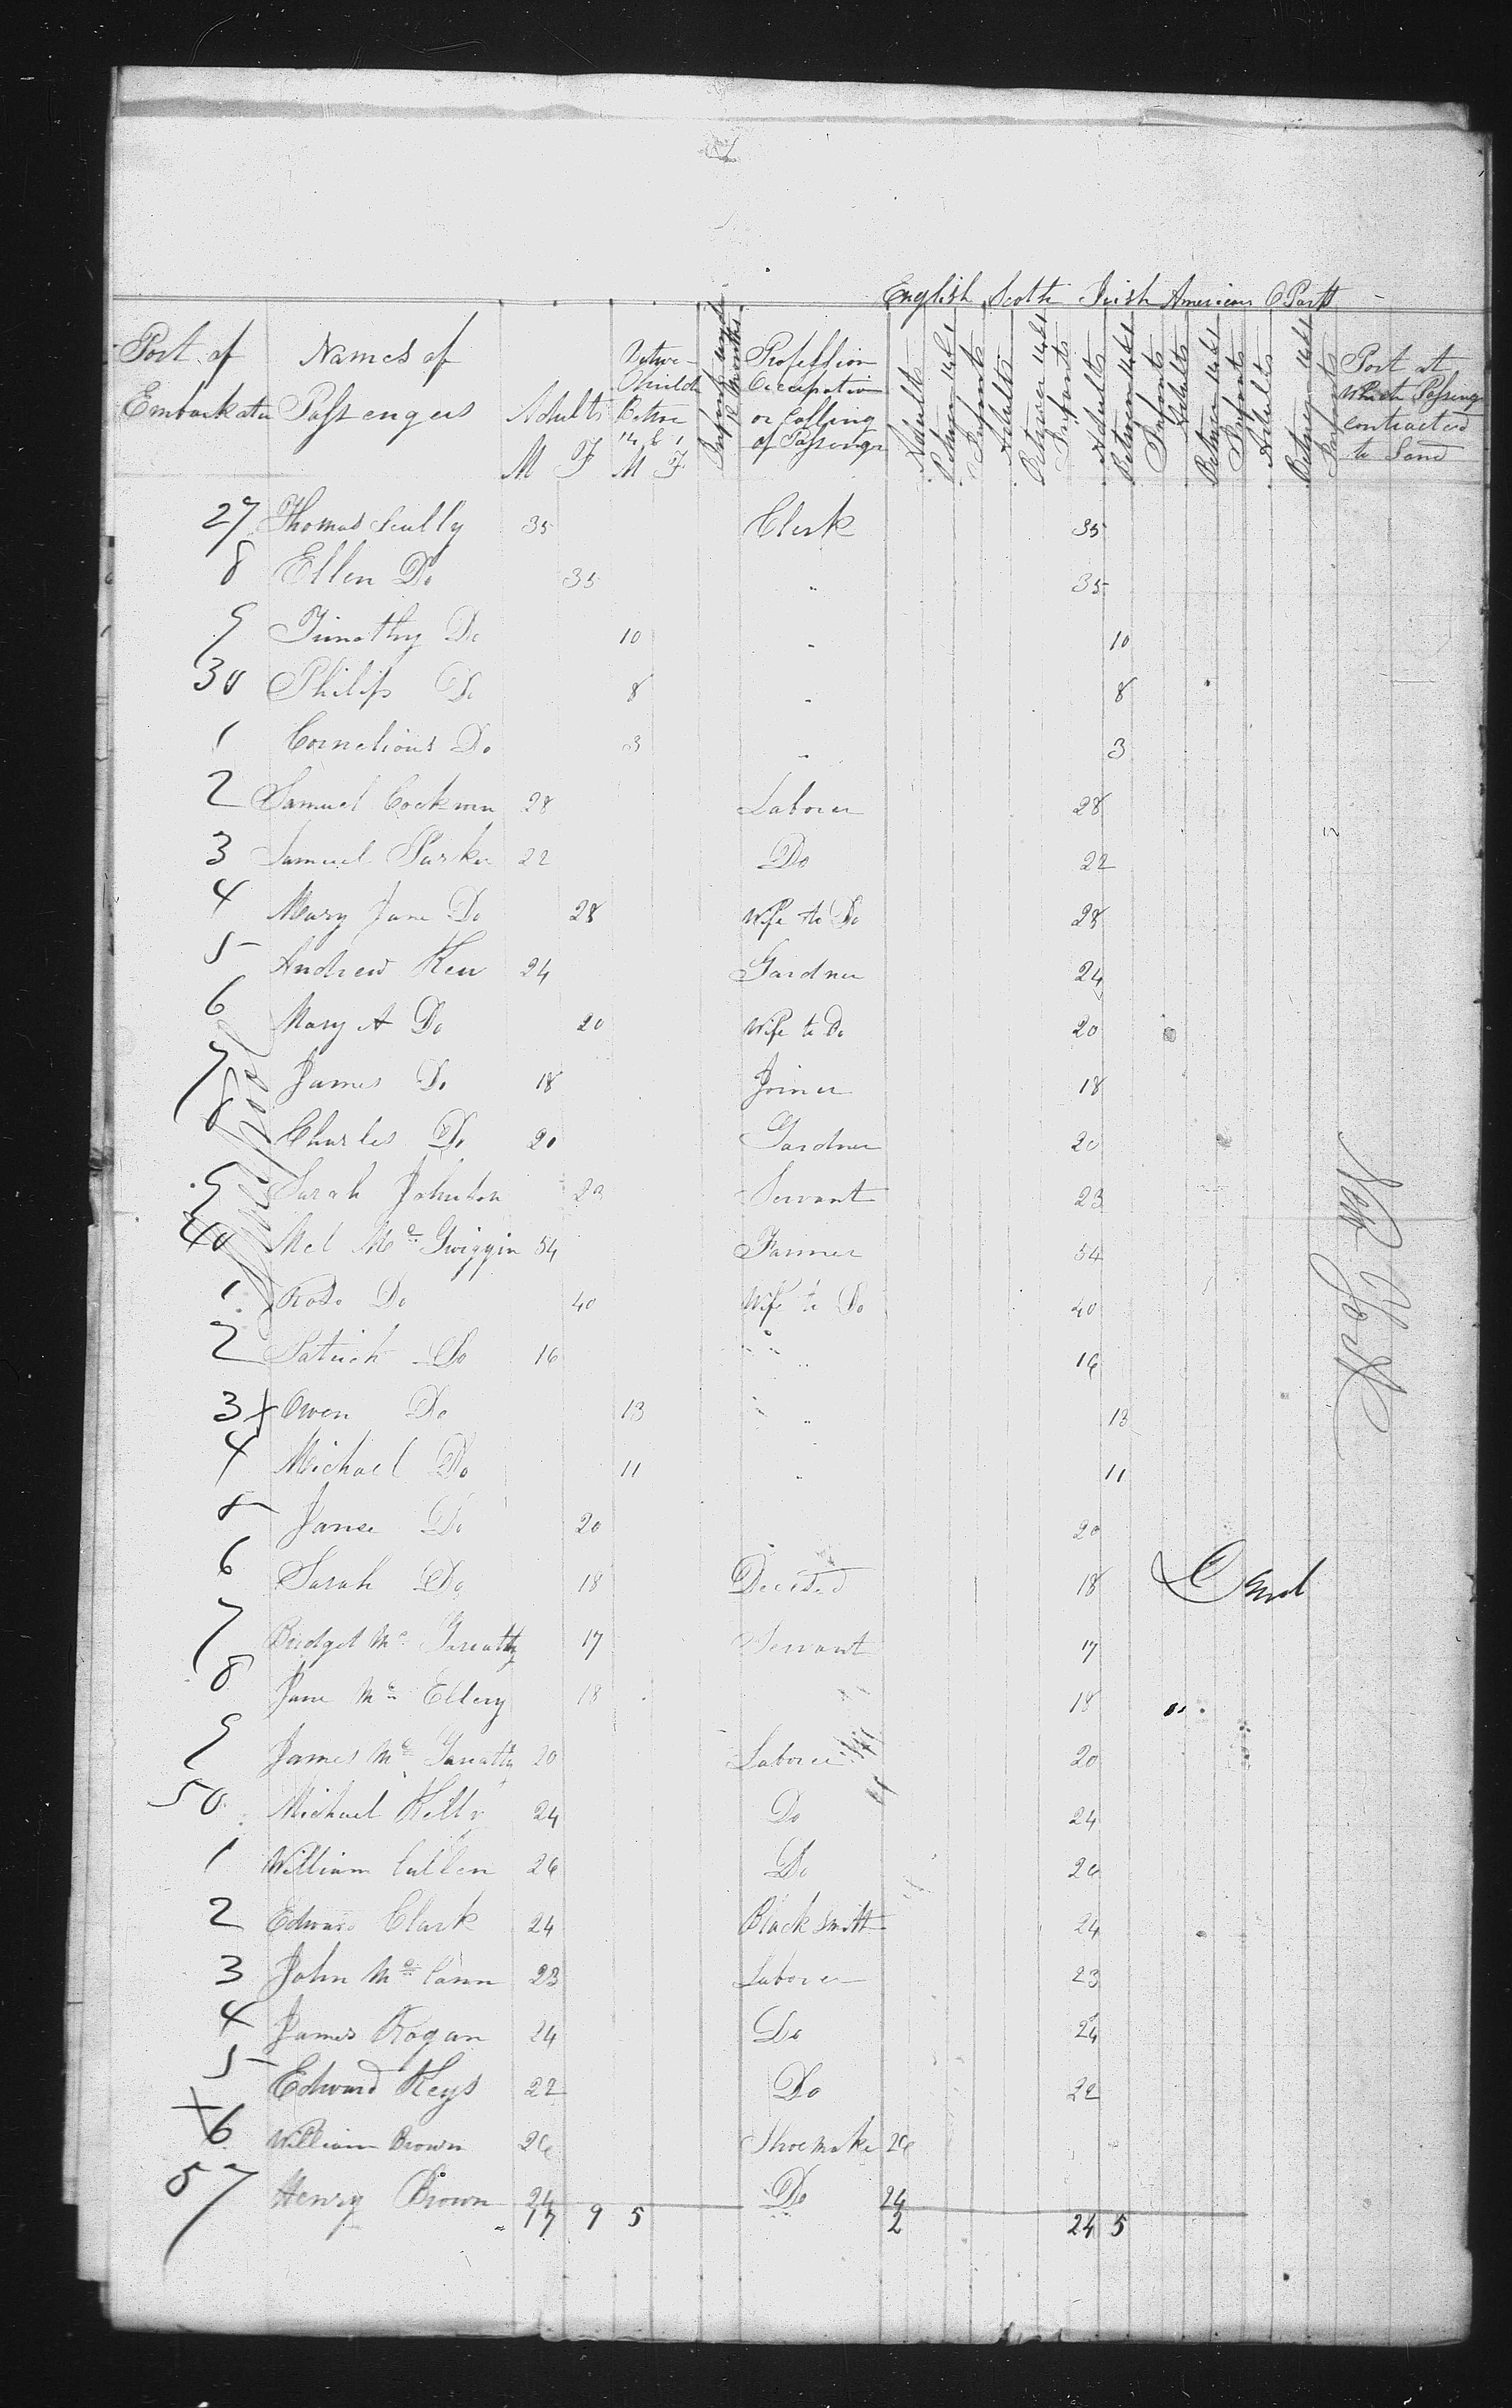 English Scotch Irish American O Parts
Port of Embarkatn
Names of Passengers
Adults M F
Children Betwe 14 & 1 M F
Infants under 12 Months
Profession Occupation or Calling of Passenger
Adults Between 14 & 1 Infants
Adults Between 14 & 1 Infants
Adults Between 14 & 1 Infants
Adults Between 14 & 1 Infants
Adults Between 14 & 1 Infants
Port at which Passengr contracted to Land
Liverpool
New York
27 Thomas Scully 35 Clerk 35
8 Ellen Do 35 " 35
9 Timothy Do 10 " 10
30 Philip Do 8 " 8
1 Cornelious Do 3 " 3
2 Samuel Cockrun 28 Laborer 28
3 Samuel Parker 22 Do 22
4 Mary Jane Do 28 Wife to Do 28
5 Andrew Kerr 24 Gardner 24
6 Mary A Do 20 Wife to Do 20
7 James Do 18 Joiner 18
8 Charles Do 20 Gardner 20
9 Sarah Johnston 23 Servant 23
40 Mcl Mc Gwiggin 54 Farmer 54
1 Rose Do 40 Wife to Do 40
2 Patrick Do 16 " 16
3 x Owen Do 13 " 13
4 Michael Do 11 " 11
5 Jane Do 20 20
6 Sarah Do 18 Decesed 18
7 Bridget Mc 17 Servant 17
8 Jane Mc Ellery 18 18
9 James Mc 20 Laborer 20
50 Michael Kelly 24 Do 24
1 William Cullen 26 Do 26
2 Edward Clark 24 Black Smith 24
3 John Mc Cann 23 Laborer 23
4 James Rogan 24 Do 24
5 Edward Keys 22 Do 22
x 6 William Brown 26 Shoe Maker 26
57 Henry Brown 24 Do 24
17 9 5 2 24 5